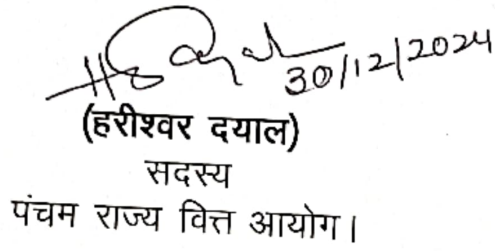 30/12/2024
(हरीश्वर दयाल)
सदस्य
पंचम राज्य वित्त आयोग।